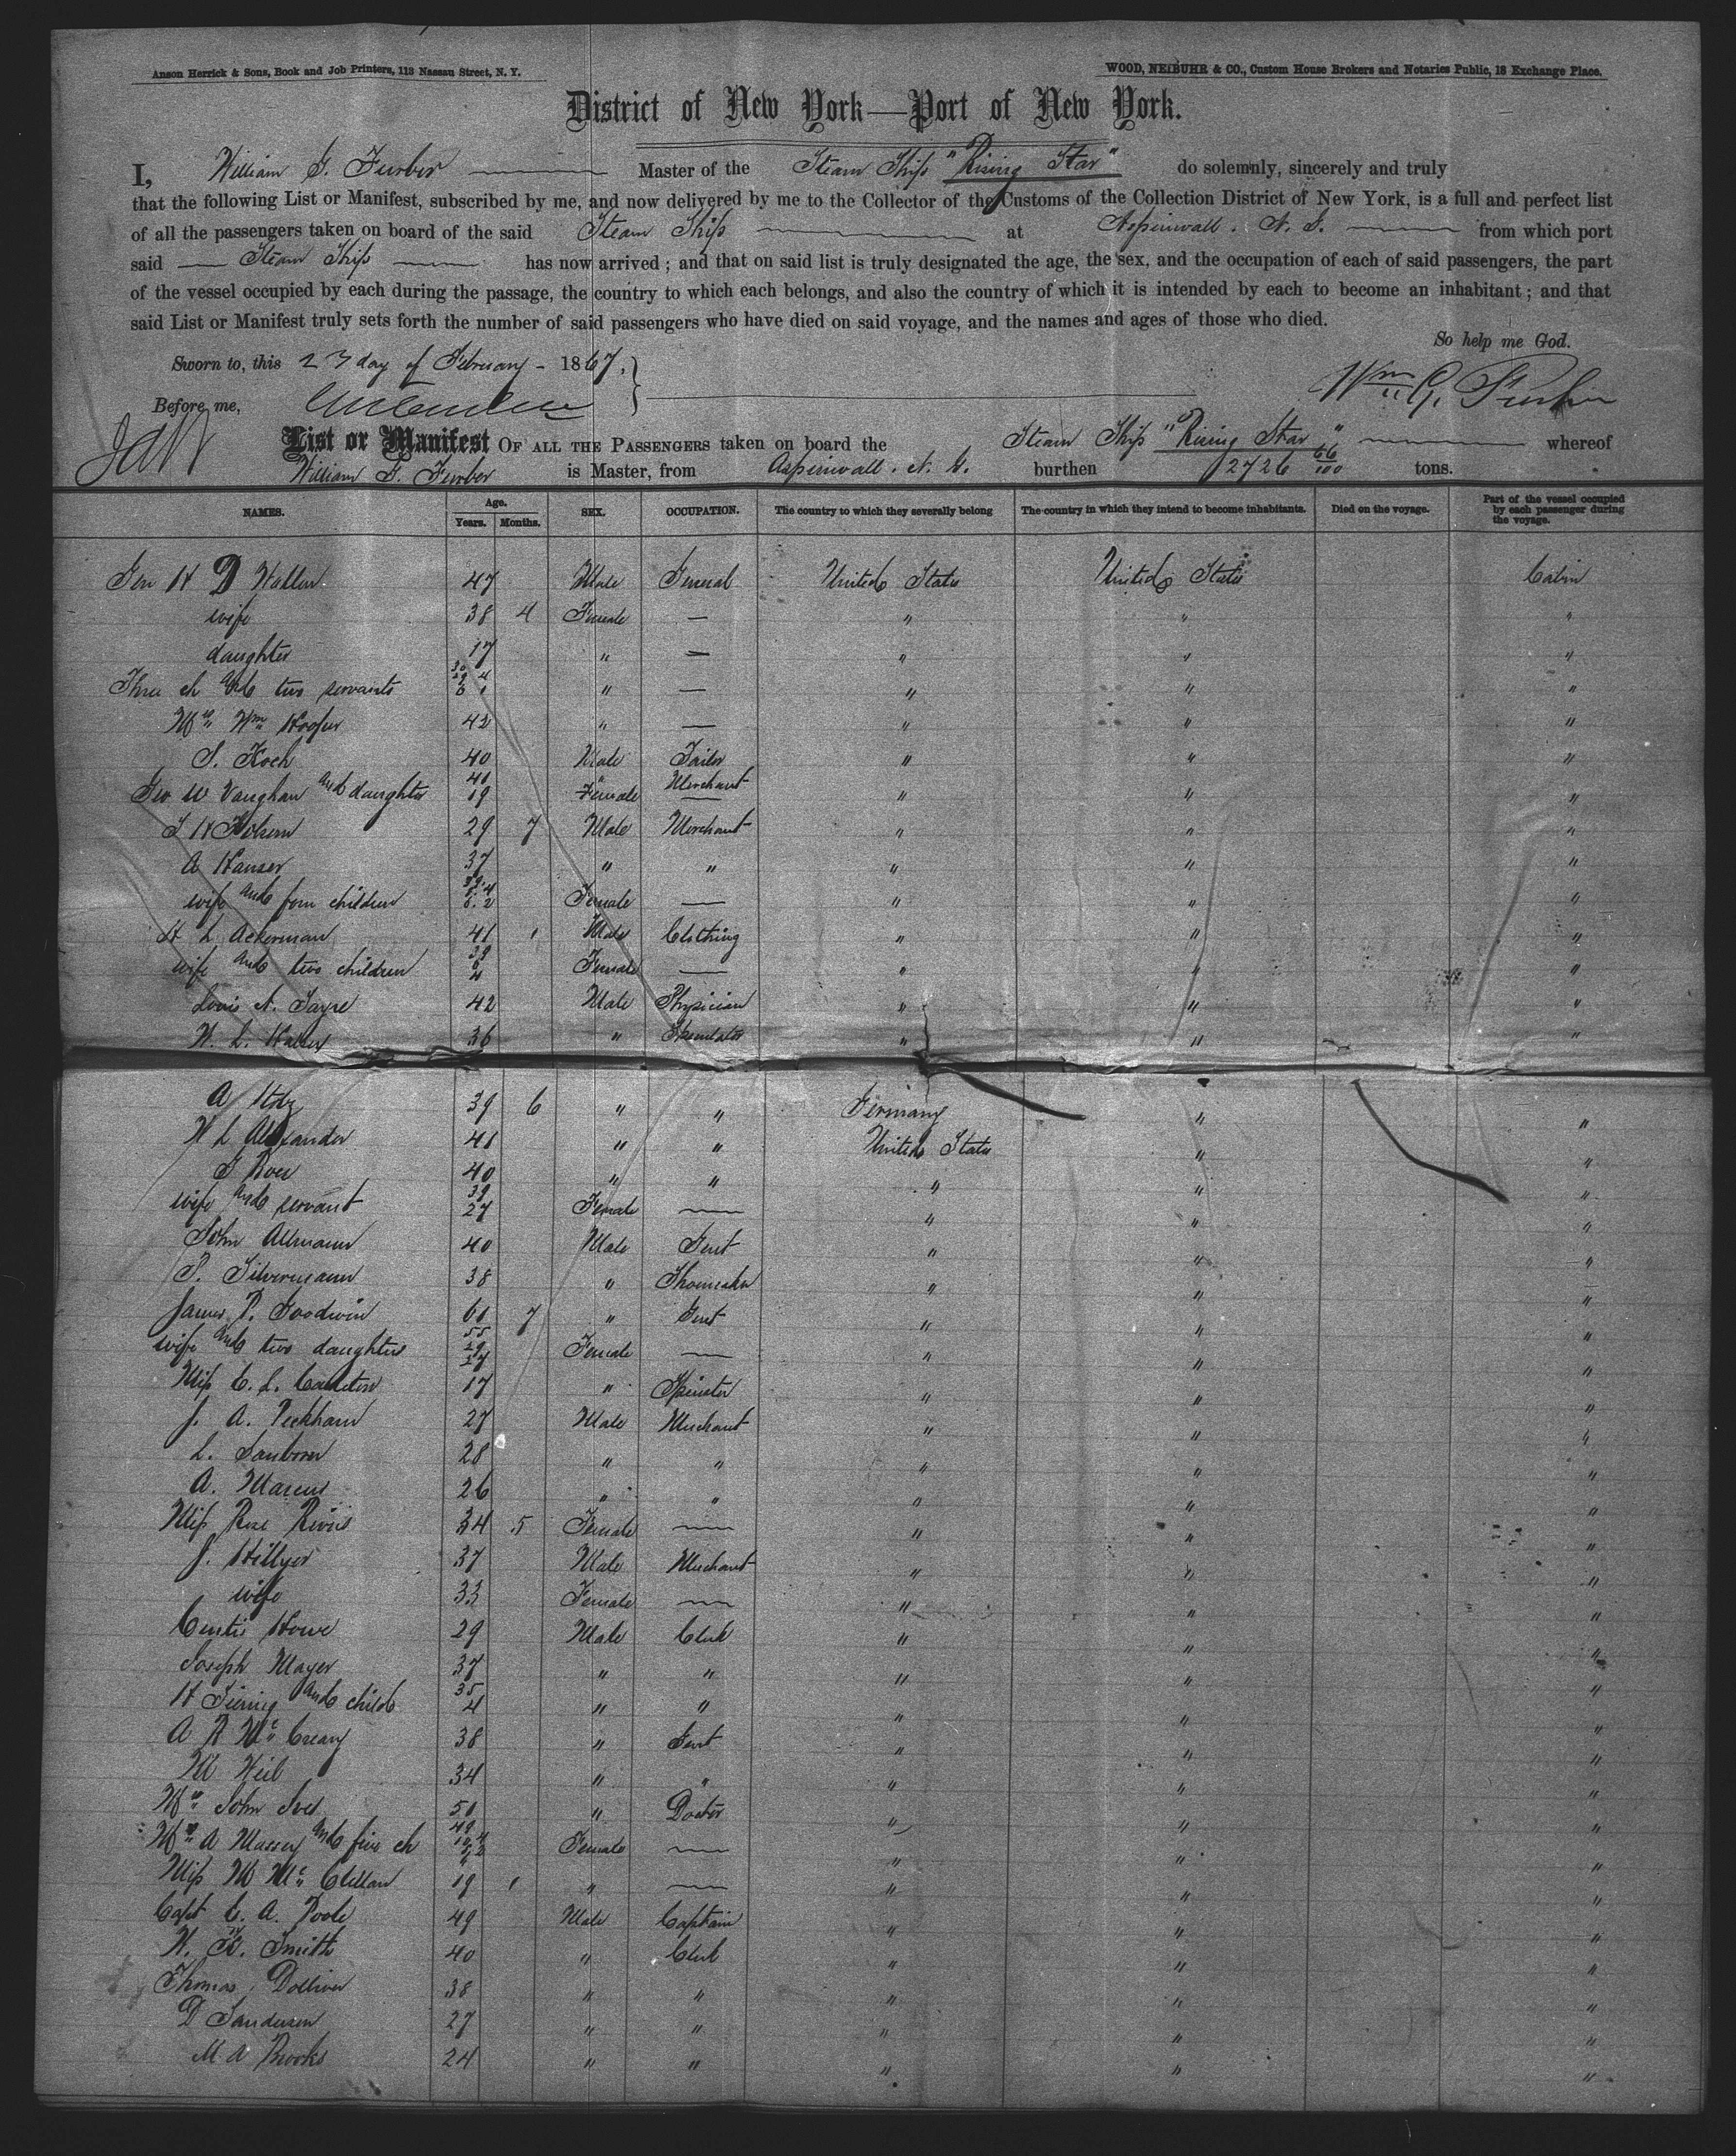 Anson Herrick & Sons, Book and Job Printers, 113 Nassau Street, N. Y.
WOOD, NEIBUHR & CO., Custom House Brokers and Notaries Public, 18 Exchange Place.
District of New York—Port of New York.
I, William G. Furber Master of the Steam Ship "Rising Star" do solemnly, sincerely and truly
that the following List or Manifest, subscribed by me, and now delivered by me to the Collector of the Customs of the Collection District of New York, is a full and perfect list
of all the passengers taken on board of the said Steam Ship at Aspinwall. N. G. from which port
said Steam Ship has now arrived; and that on said list is truly designated the age, the sex, and the occupation of each of said passengers, the part
of the vessel occupied by each during the passage, the country to which each belongs, and also the country of which it is intended by each to become an inhabitant; and that
said List or Manifest truly sets forth the number of said passengers who have died on said voyage, and the names and ages of those who died.
So help me God.
Sworn to, this 23 day of February - 1867.
Wm G. Furber
Before me,
List or Manifest OF ALL THE PASSENGERS taken on board the Steam Ship "Rising Star" whereof
William G. Furber is Master, from Aspinwall. N. G. burthen 2726 66/100 tons.
NAMES. Age. Years. Months. SEX. OCCUPATION. The country to which they severally belong The country in which they intend to become inhabitants. Died on the voyage. Part of the vessel occupied by each passenger during the voyage.
Gen H D Wallen 47 Male General United States United States Cabin
wife 38 4 Female — " " "
daughter 17 " — " " "
Three ch and two servants 30 29 4 6 1 " — " " "
Mrs Wm Hooper 42 " — " " "
S. Koch 40 Male Tailor " " "
Geo W Vaughan and daughter 41 19 " Female Merchant — " " "
29 7 Male Merchant " " "
A Hauser 37 " " " " "
wife and four children Female — " " "
H L Ackerman 41 1 Male Clothing " " "
wife and two children 39 6 4 Female — " " "
Louis A. Sayre 42 Male Physician " " "
36 " Speculator " " "
A 39 6 " " Germany " "
H L Alexander 41 " " United States " "
40 " " " " "
wife and servant 39 27 Female — " " "
John Allmann 40 Male Gent " " "
S. Silvermann 38 " Shoemaker " " "
James P. Goodwin 61 7 " Gent " " "
wife and two daughters 55 29 27 Female — " " "
Miss C. L. Carleton 17 " Spinster " " "
J. A. Peckham 27 Male Merchant " " "
L. Sanborn 28 " " " " "
A. Marcus 26 " " " " "
Miss Rose 34 5 Female — " " "
J. Hillyer 37 Male Merchant " " "
wife 33 Female — " " "
Curtis Howe 29 Male Clerk " " "
Joseph Mayer 37 " " " " "
H and child 35 4 " " " " "
A R McCreary 38 " Gent " " "
M Weil 34 " " " " "
John Ives 50 " Doctor " " "
Mrs A Massey and five ch Female — " " "
Miss M McClellan 19 1 " — " " "
Capt C. A. Poole 49 Male Captain " " "
Smith 40 " Clerk " " "
Thomas Dolliver 38 " " " " "
D Sanderson 27 " " " " "
M A Brooks 24 " " " " "